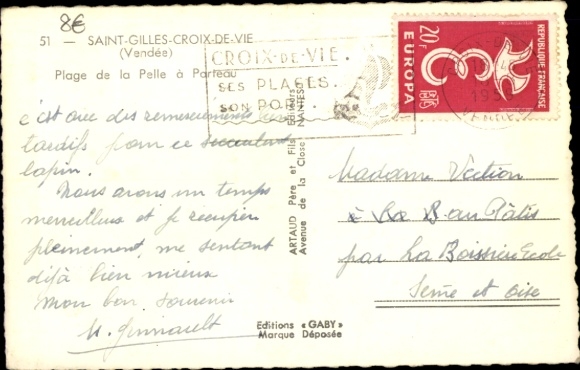 8€
51 — SAINT-GILLES-CROIX-DE-VIE
(Vendée)
Plage de la Pelle à Porteau
CROIX-DE-VIE.
SES PLAGES.
SON PORT.
20F
EUROPA
REPUBLIQUE FRANÇAISE
POSTES
c'est avec des remerciements
tardifs pour ce succulent
lapin.
Nous avons un temps
merveilleux et je récupère
pleinement, me sentant
déjà bien mieux
Mon bon souvenir
ARTAUD Père et Fils Editeurs
Avenue de la Close NANTES
Madame
à Bon Pâtis
par La Boissière Ecole
Seine et Oise
Editions « GABY »
Marque Déposée